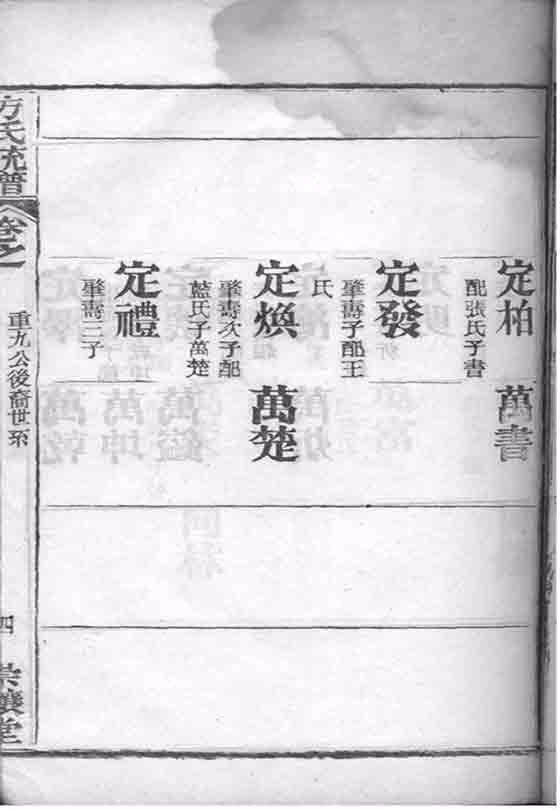 定柏
配張氏子書
萬書
定發
肇壽子配王
氏
定煥
肇壽次子配
藍氏子萬楚
萬楚
定禮
肇壽三子
方氏統譜
卷之
重九公後裔世系
四